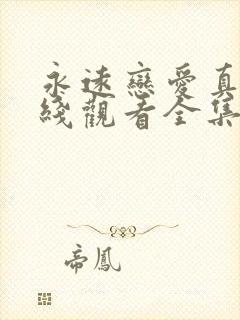 永遠戀愛真
綫觀看全集
帝鳳